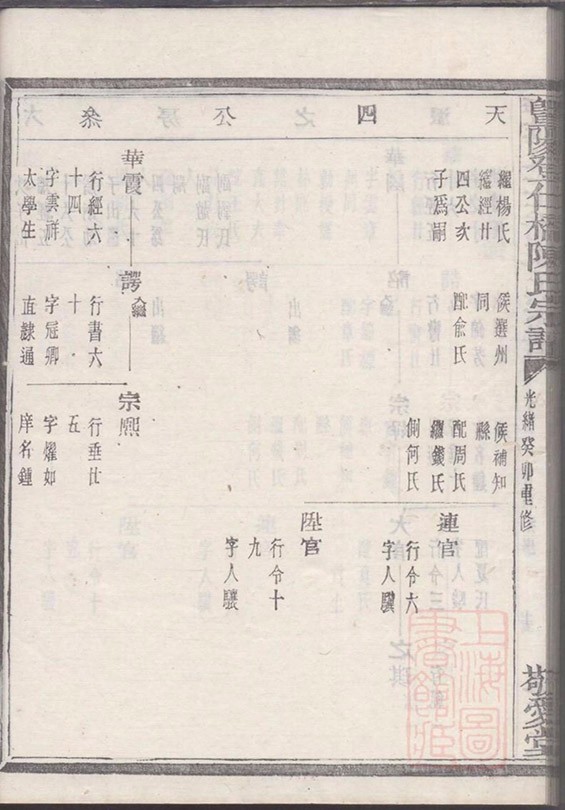 暨陽登仁橋陳氏宗譜
光緒癸卯重修
敬愛堂
天四公叅
繼楊氏
繼經廿
四公次
子爲嗣
華霞
行經六
十四
字雲群
太學生
候選州
同
配俞氏
諤
入繼
行書六
十
字冠卿
直隸通
候補知
縣
配周氏
繼錢氏
側何氏
宗熙
行垂廿
五
字燿如
庠名鍾
連官
行令六
字人驥
陞官
行令十
九
字人驤
上海圖
書館藏